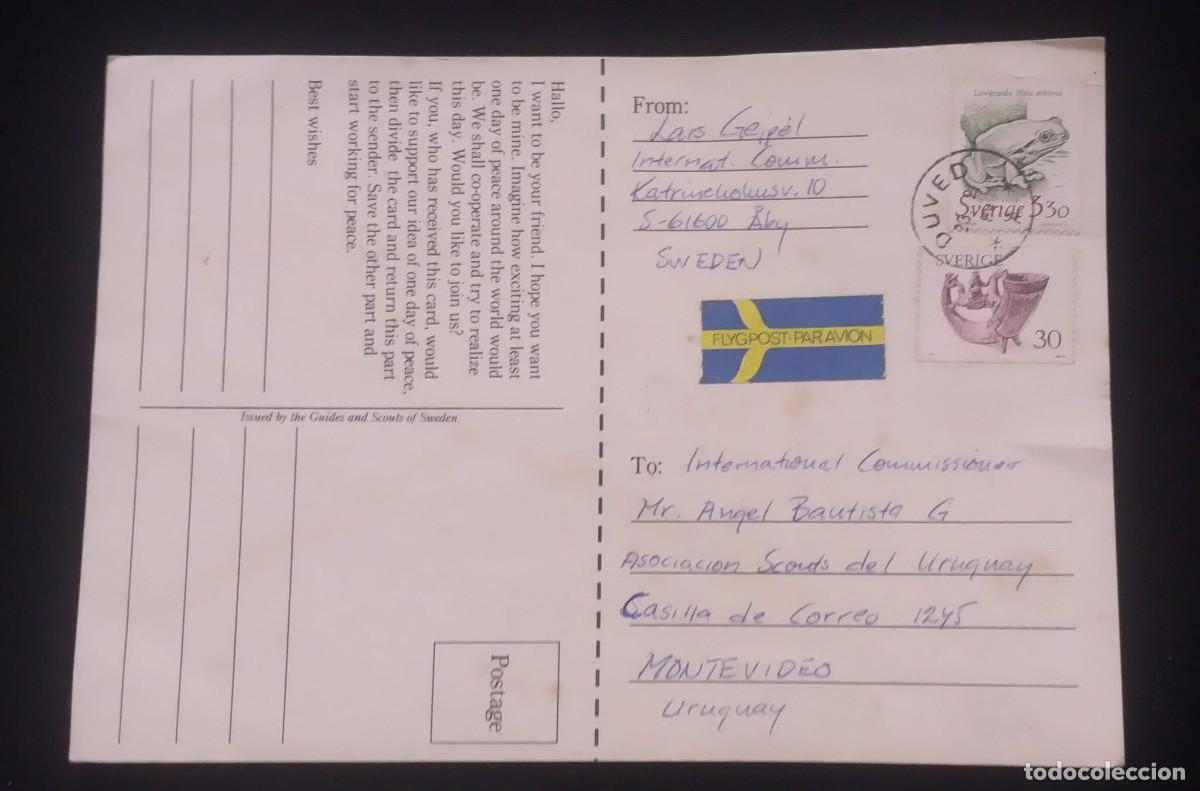 Hallo,
I want to be your friend. I hope you want
to be mine. Imagine how exciting at least
one day of peace around the world would
be. We shall co-operate and try to realize
this day. Would you like to join us?
If you, who has received this card, would
like to support our idea of one day of peace,
then divide the card and return this part
to the sender. Save the other part and
start working for peace.
Best wishes
Issued by the Guides and Scouts of Sweden.
Postage
From:
Lars Geipèl
Internat. Comm.
S-61600 Åby
SWEDEN
Lövgroda Hyla arborea
Sverige 3,30
DUVED
SVERIGE
30
FLYGPOST·PAR AVION
To: International Commissioner
Mr. Angel Bautista G
Asociacion Scouts del Uruguay
Casilla de Correo 1245
MONTEVIDEO
Uruguay
todocoleccion